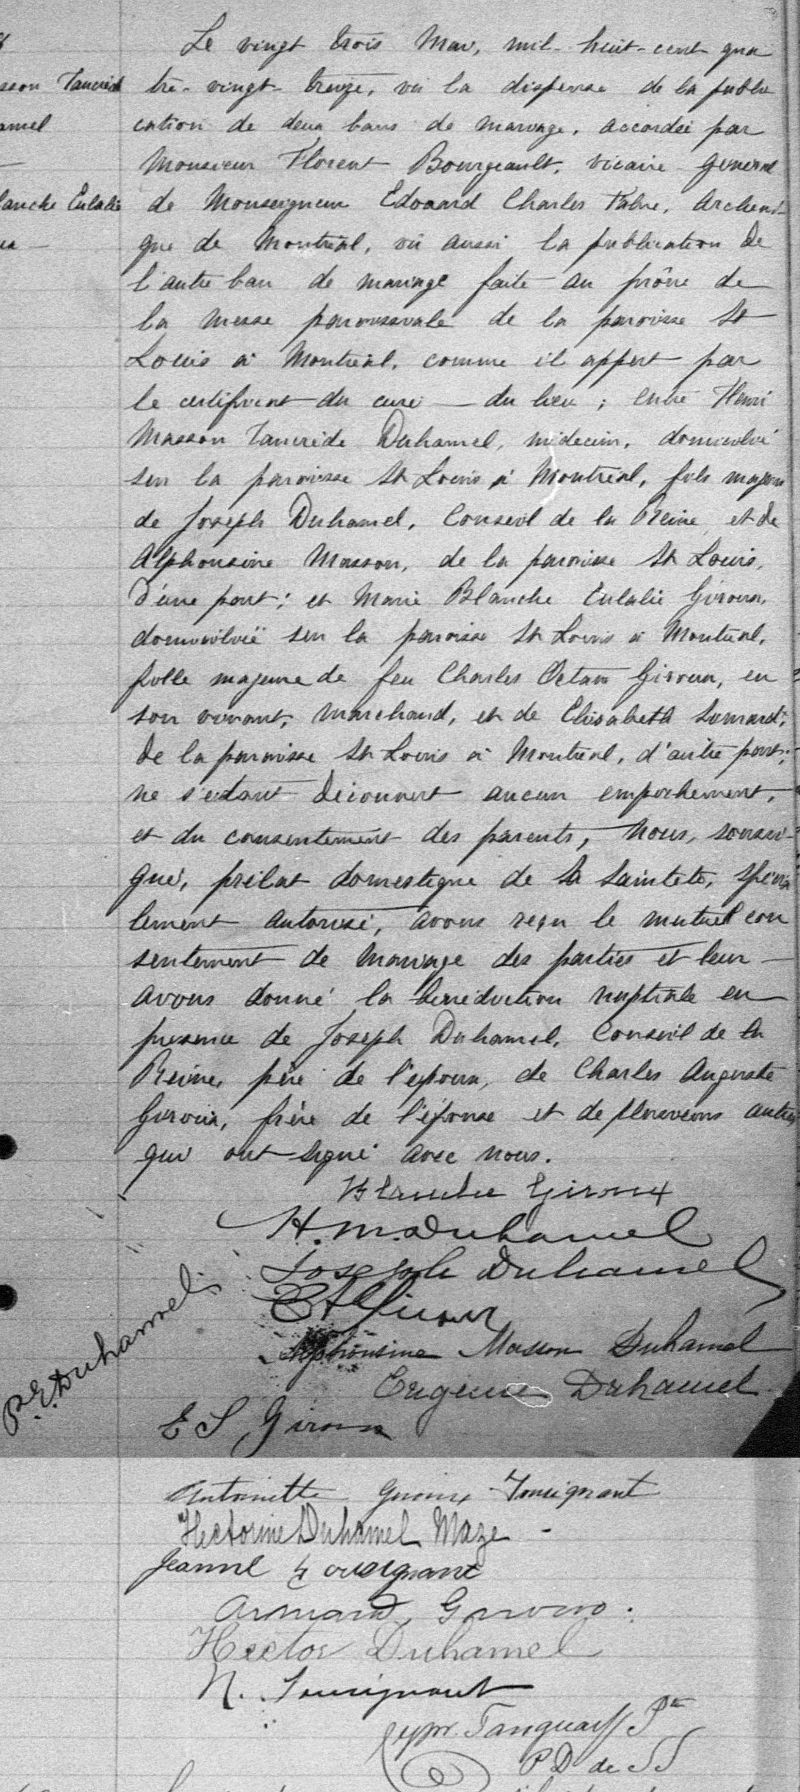 Le vingt trois Mai, mil-huit-cent qua
tre-vingt-treize, vu la dispense de la publi
cation de deux bans de mariage, accordée par
Monsieur Florent Bourgeault, vicaire général
de Monseigneur Edouard Charles Fabre, Archevê-
que de Montréal, vu aussi la publication de
l'autre ban de mariage faite au prône de
la messe paroissiale de la paroisse St
Louis à Montréal, comme il appert par
le certificat du curé — du lieu ; entre Henri
Masson Tancrède Duhamel, médecin, domicilié
sur la paroisse St Louis à Montréal, fils majeur
de Joseph Duhamel, Conseil de la Reine, et de
Alphonsine Masson, de la paroisse St Louis,
d'une part ; et Marie Blanche Eulalie Giroux,
domiciliée sur la paroisse St Louis à Montréal,
fille majeure de feu Charles Octave Giroux, en
son vivant, marchand, et de Elisabeth
de la paroisse St Louis à Montréal, d'autre part ;
ne s'étant découvert aucun empêchement,
et du consentement des parents, Nous, soussi-
gné, prélat domestique de Sa Sainteté, spécia
lement autorisé, avons reçu le mutuel con
sentement de mariage des parties et leur —
avons donné la bénédiction nuptiale en
présence de Joseph Duhamel, Conseil de la
Reine, père de l'époux, de Charles Auguste
Giroux, frère de l'épouse et de plusieurs autres
qui ont signé avec nous.
sson Tancrède
amel
lanche Eulalie
Blanche Giroux
H. M. Duhamel
Joseph Duhamel
C A Giroux
Alphonsine Masson Duhamel
Eugene Duhamel
P. E. Duhamel
E S Giroux
Antoinette Giroux Tousignant
Hectorine Duhamel Maze -
Jeanne Tousignant
Armand Giroux
Hector Duhamel
N. Tousignant
Cypr. Tanguay Ptre
P D de SS